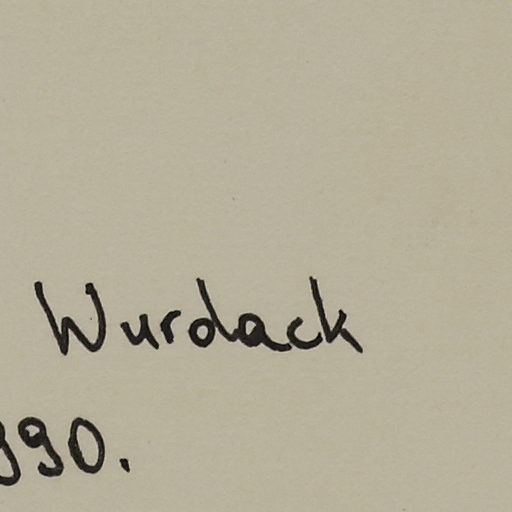 Wurdack
990.